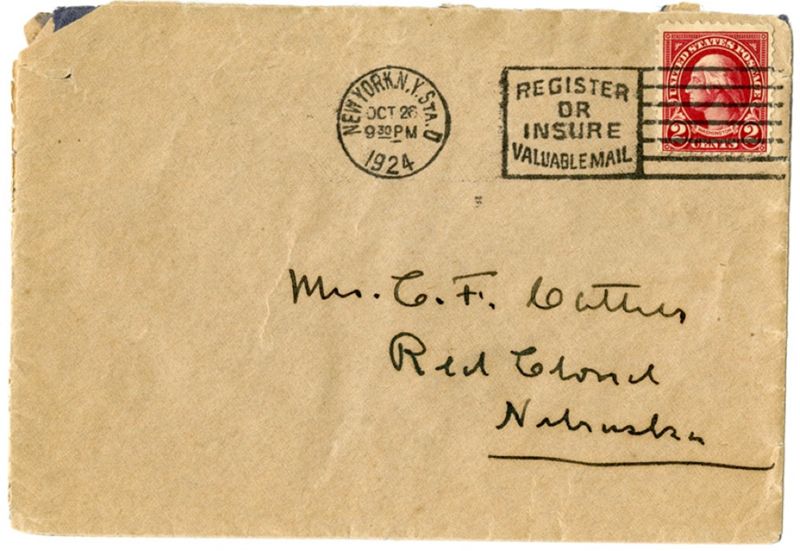 NEW YORK, N.Y. STA. D
OCT 26
9 30 PM
1924
REGISTER
OR
INSURE
VALUABLE MAIL
UNITED STATES POSTAGE
WASHINGTON
2 CENTS 2
Mrs. C. F. Cather
Red Cloud
Nebraska